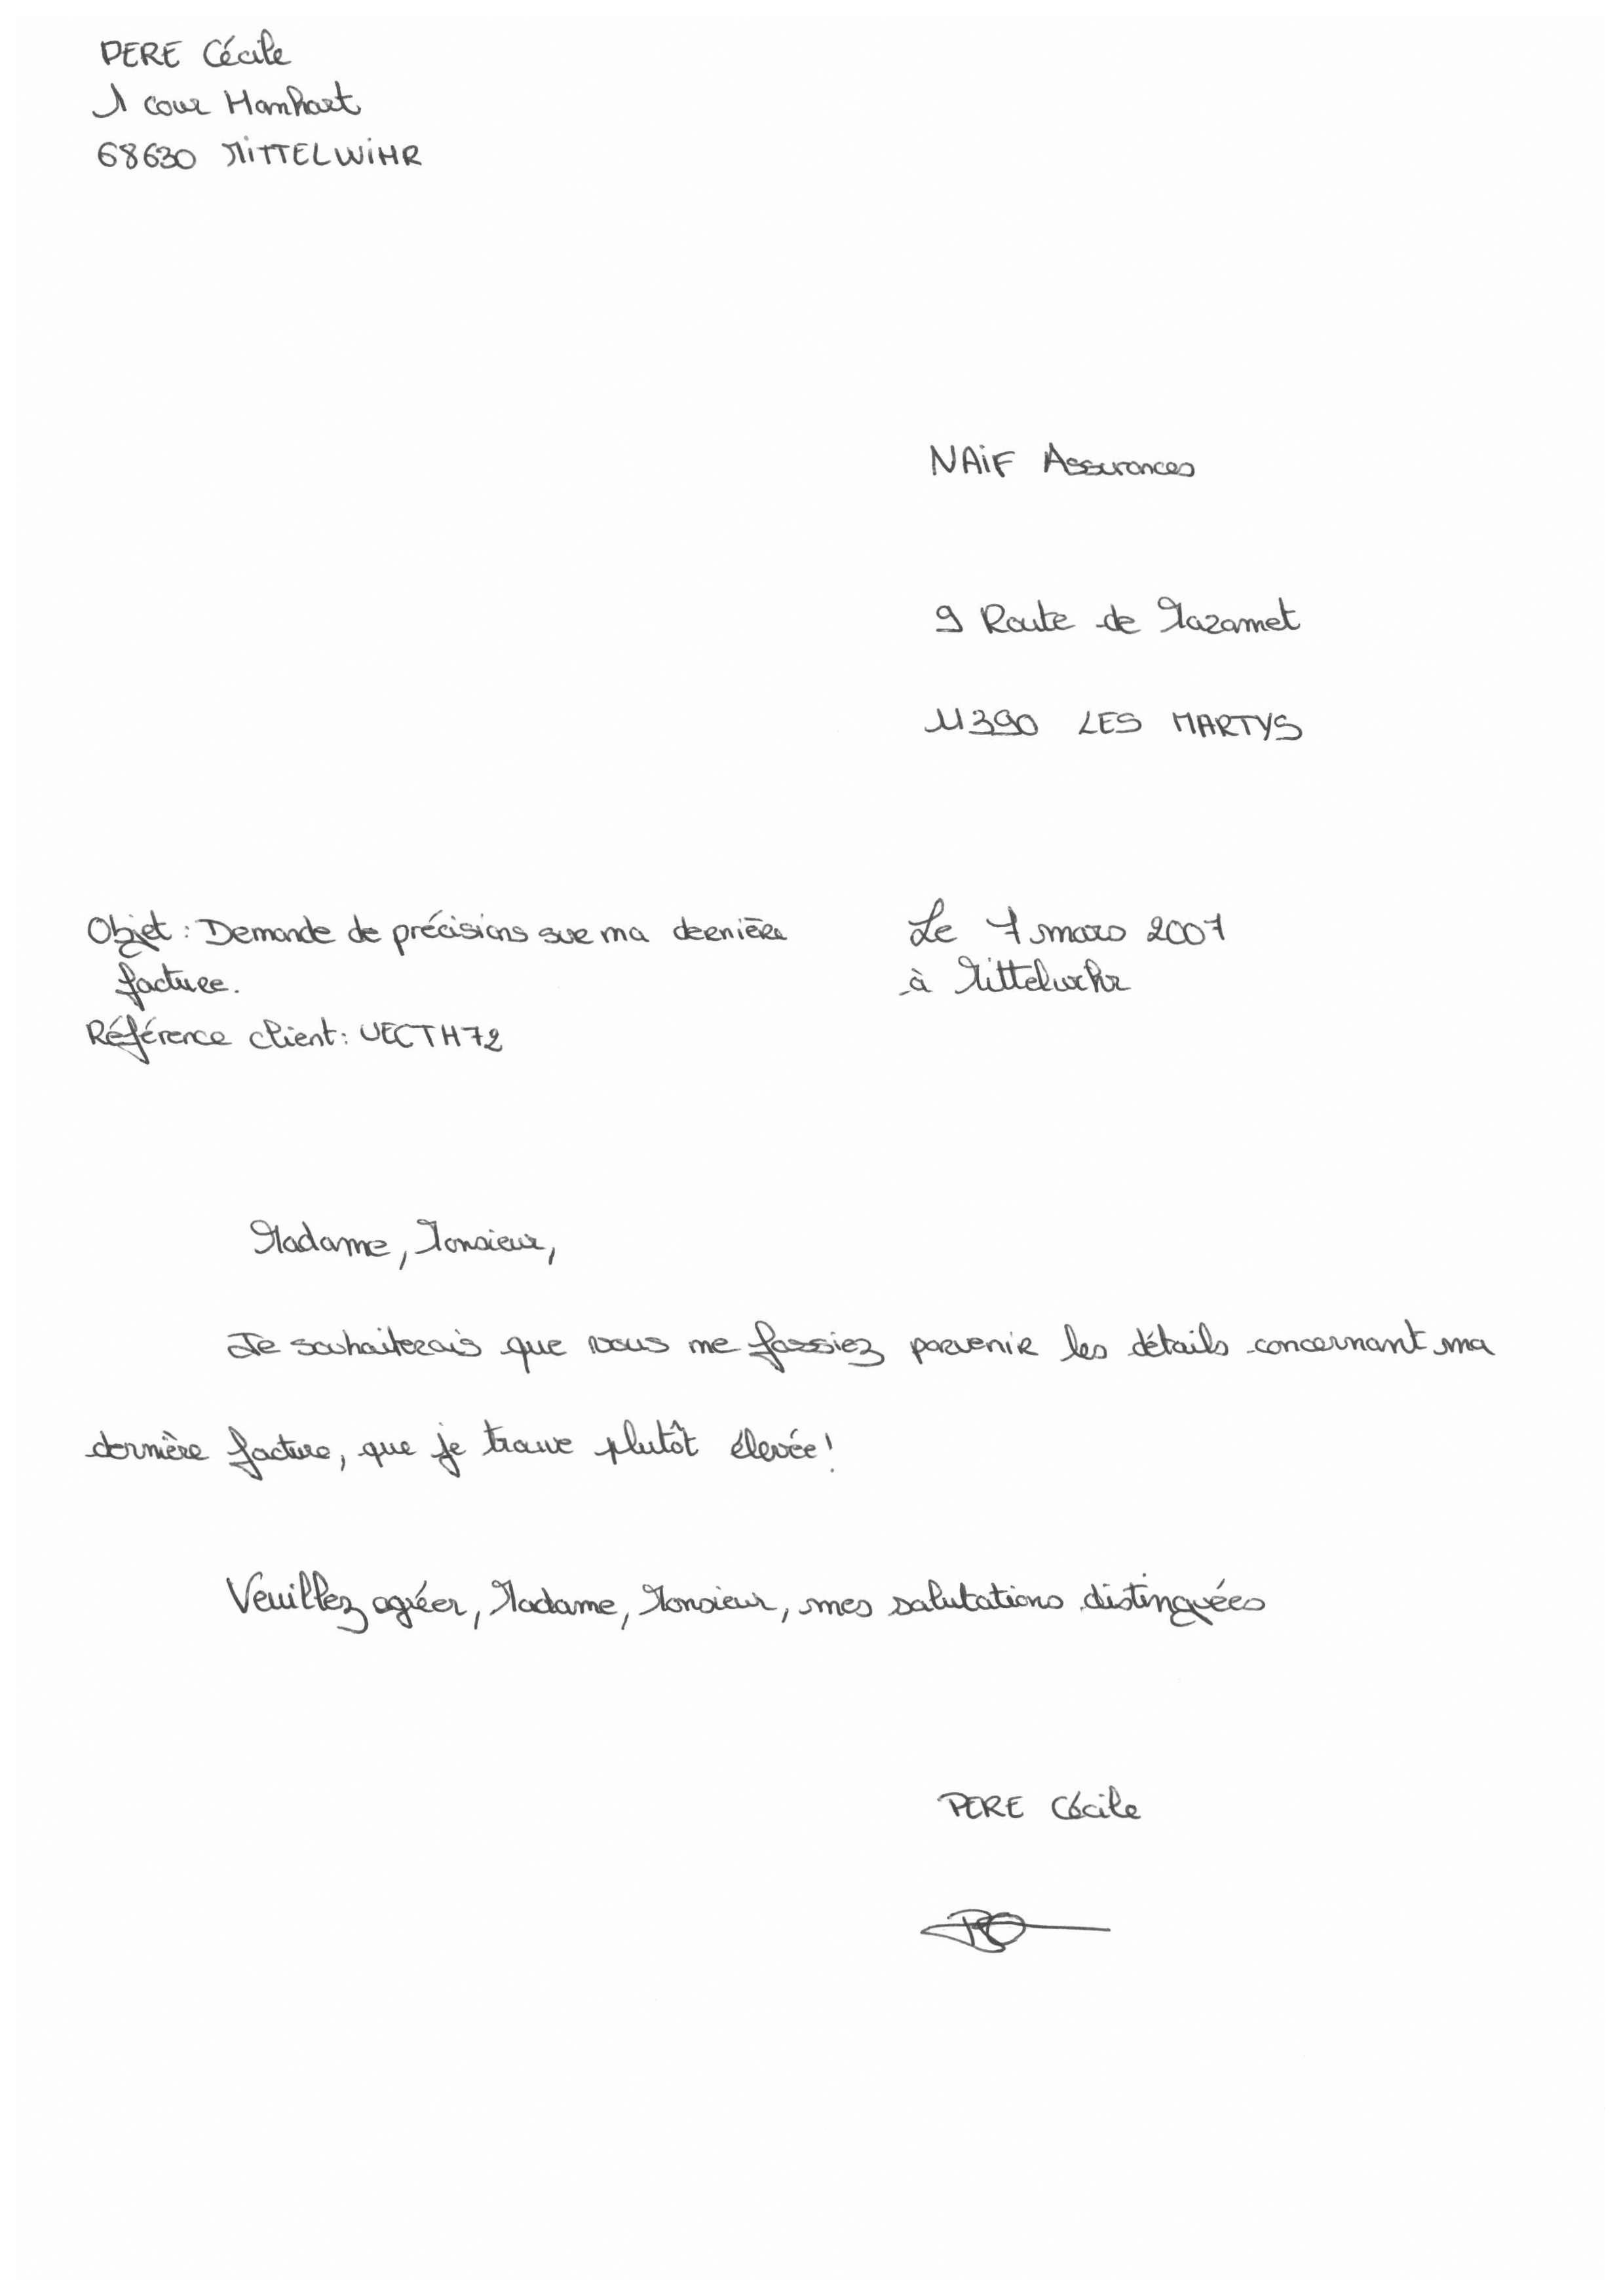 PERE Cécile
1 cour Hanhart
68630 MiTTELWiHR
NAiF Assurances
9 Route de Mazamet
11390 LES MARTYS
Objet : Demande de précisions sur ma dernière
facture.
Référence client : UECTH72
Le 7 mars 2007
à Mittelwihr
Madame, Monsieur,
Je souhaiterais que vous me fassiez parvenir les détails concernant ma
dernière facture, que je trouve plutôt élevée !
Veuillez agréer, Madame, Monsieur, mes salutations distinguées
PERE Cécile